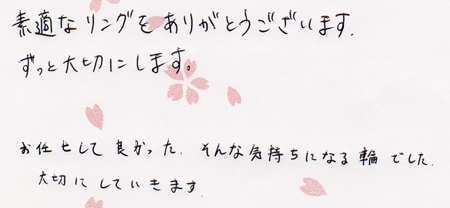 素適なリングをありがとうございます.
ずっと大切にします。
お任せして良かった. そんな気持ちになる輪でした.
大切にしていきます.